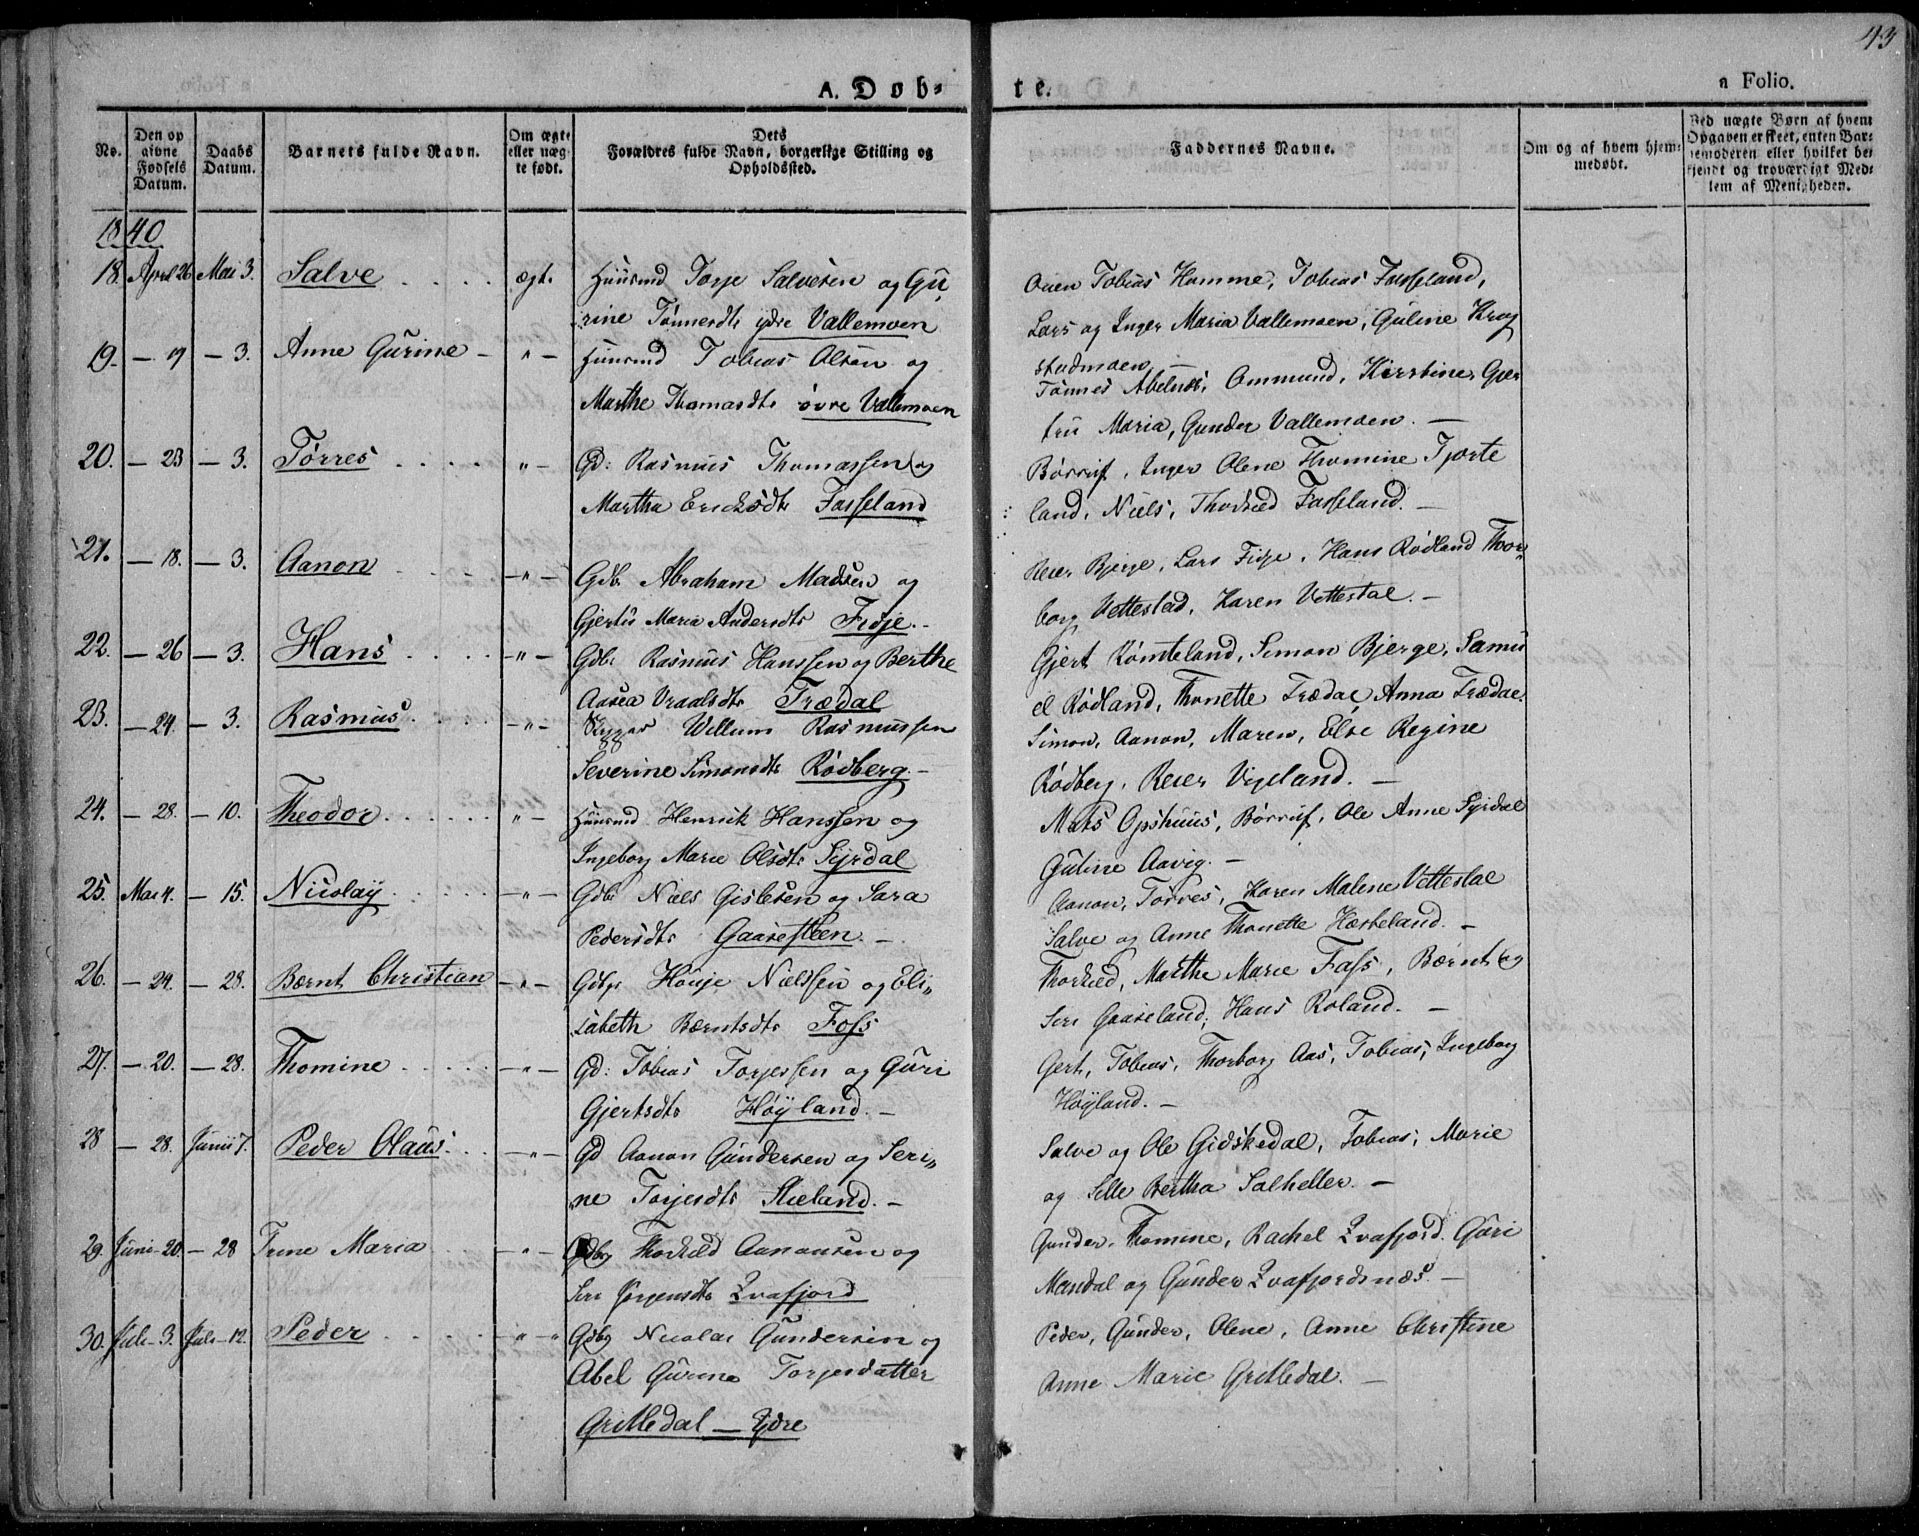 43
A. Døb-te.
a Folio.
No.
Den opgivne Fødsels Datum.
Daabs Datum.
Barnets fulde Navn.
Om ægte eller uægte født.
Dets Forældres fulde Navn, borgerlige Stilling og Opholdssted.
Faddernes Navne.
Om og af hvem hjemmedøbt.
Ved uægte Børn af hvem Opgaven er skeet, enten Barnemoderen eller hvilket bekjendt og troværdigt Medlem af Menigheden.
1840
18. April 26 Mai 3. Salve ægte Huusmd Torje Salvesen og Gu-
rine Tønnesdt ydre Vallemoen
Tobias Homme, Tobias Fasseland,
Lars og Inger Maria Vallemoen, Guline Krog
stadmoen
19. — 19 — 3. Anne Gurine — " — Huusmd Tobias Olsen og
Marthe Thomasdt øvre Vallemoen
Tønnes Abelnæs, Ommund, Kirstine, Gjer
tru Maria, Gunder Vallemoen. —
20. — 23 — 3. Tørres " — Gd: Rasmus Thomassen og
Martha Ericksdt Fasseland
Børruf, Inger Olene Thomine Tjorte
land, Niels, Thorkild Fasseland. —
21. — 18. — 3. Aanon — " — Gdb. Abraham Madsen og
Gjertru Maria Andersdt Fidje. —
Reier Bjerge, Lars Fidje, Hans Rødland Thor-
borg Vettestad, Karen Vettestal. —
22. — 26 — 3. Hans — " — Gdb. Rasmus Hanssen og Berthe
Aasea Vraalsdt Trædal
Gjert Romteland, Simon Bjerge, Samu
el Rødland, Thonette Trædal Anna Trædal
23. — 24. — 3. Rasmus. — " — Willum Rasmussen
Severine Simonsdt Rødberg. —
Simon, Aanon, Maren, Else Regine
Rødberg, Reier Vigeland. —
24. — 28. — 10. Theodor " — Huusmd Henrik Hanssen og
Ingeborg Marie Olsdt Syrdal
Mats Opshuus, Børruf, Ole Anne Syrdal
Guline Aavig. —
25. Mai 4. — 15. Nicolay — " — Gdb. Niels Gislesen og Sara
Pedersdt Gaaseflaen. —
Aanon, Torres, Karen Malene Vettestal
Salve og Anne Thonette Hæskeland. —
26. — 24. — 28. Bærnt Christian — " — Gdbr Houje Nielssen og Eli-
sabeth Bærntsdt Foss
Thorkild, Marthe Marie Foss, Bærnt og
Siri Gaaseland, Hans Roland. —
27. — 20. — 28. Thomine — " — Gd: Tobias Torjessen og Guri
Gjertsdt Høyland. —
Gert, Tobias, Thorborg Aas, Tobias, Ingeborg
Høyland. —
28 — 28. Junii 7. Peder Olaus — " — Gd Aanon Gundersen og Seri-
ne Torjesdt Skeland. —
Salve og Ole Gidskedal, Tobias, Marie
og Sille Bertha Salheller. —
29. Juni 20. — 28 Trine Maria — " — Gdbr Thorkild Aanonsen og
Siri Jørgensdt Qvafjord
Gunder, Thomine, Rachel Qvafjord. Guri
Mandal og Gunder Qvafjordsnæs. —
30. Juli 3. Juli 12. Peder " — " Gdbr Nicolai Gundersen og
Abel Gurine Torjesdatter
Gritledal — Ydre
Peder, Gunder, Olene, Anne Christine
Anne Marie Gritledal. —